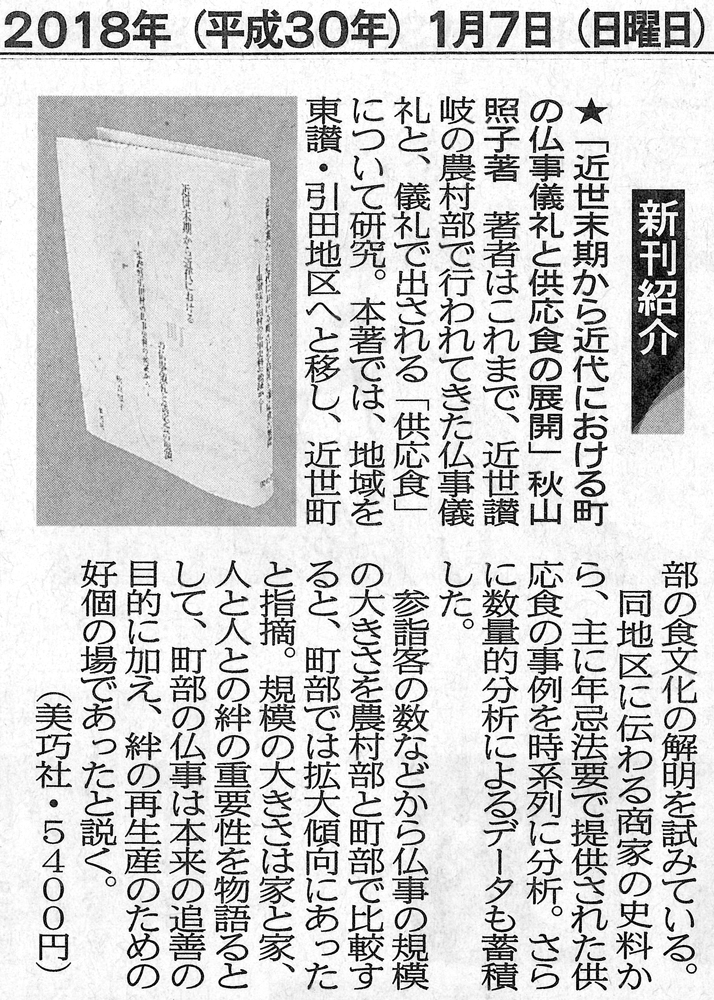 2018年（平成30年）1月7日（日曜日）
新刊紹介
★「近世末期から近代における町
の仏事儀礼と供応食の展開」秋山
照子著　著者はこれまで、近世讃
岐の農村部で行われてきた仏事儀
礼と、儀礼で出される「供応食」
について研究。本著では、地域を
東讃・引田地区へと移し、近世町
近世末期から近代における
部の食文化の解明を試みている。
　同地区に伝わる商家の史料か
ら、主に年忌法要で提供された供
応食の事例を時系列に分析。さら
に数量的分析によるデータも蓄積
した。
　参詣客の数などから仏事の規模
の大きさを農村部と町部で比較す
ると、町部では拡大傾向にあった
と指摘。規模の大きさは家と家、
人と人との絆の重要性を物語ると
して、町部の仏事は本来の追善の
目的に加え、絆の再生産のための
好個の場であったと説く。
（美巧社・5400円）